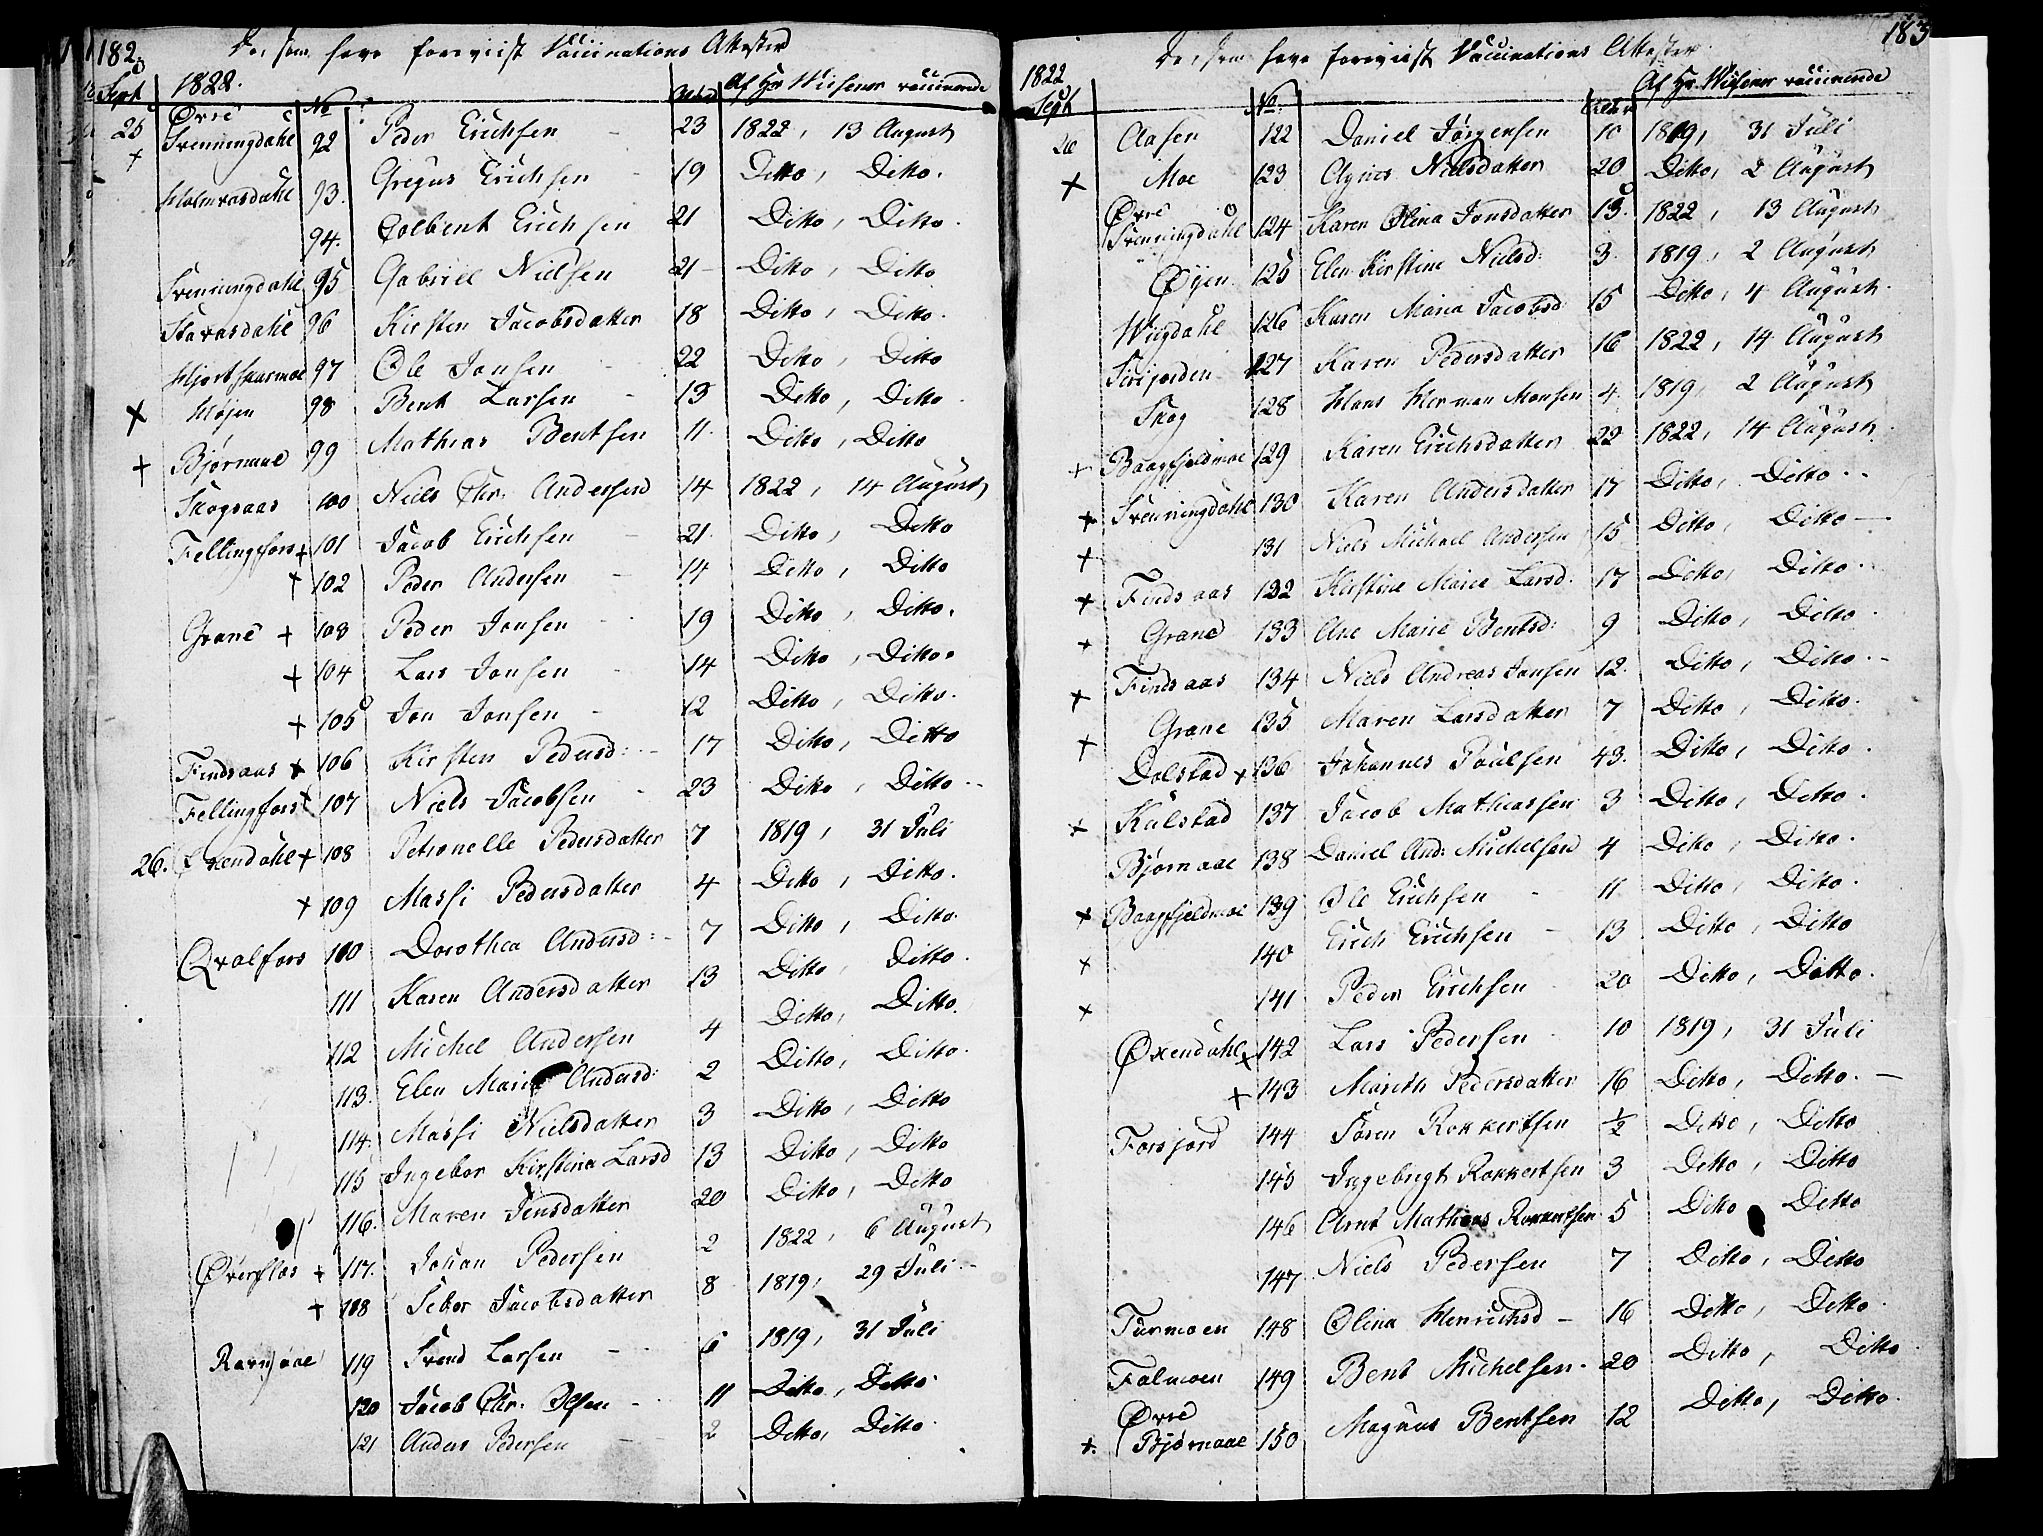 182
De, som have foreviist Vaccinations Attester
Sept 1822. Alder Af Hr Wiisener vaccinerede
25 Øvre Svenningdahl No 92 Peder Erichsen 23 1822, 13 August
Holmvasdahl 93. Gregus Erichsen 19 Ditto, Ditto.
94. Colbent Erichsen 21 Ditto, Ditto.
Svenningdahl 95 Gabriel Nielsen 21 Ditto, Ditto
Stavasdahl 96 Kirsten Jacobsdatter 18 Ditto, Ditto.
Hjortskarmoe 97 Ole Jonsen 22 Ditto, Ditto
+ Højen 98 Bent Larsen 13 Ditto, Ditto
+ Bjørnaae 99 Mathias Bentsen 11. Ditto, Ditto
Skogsaas 100 Niels Chr: Andersen 14 1822, 14 August
Fellingfors + 101 Jacob Erichsen 21. Ditto, Ditto
+ 102 Peder Andersen 14 Ditto, Ditto
Grane + 103 Peder Jonsen 19 Ditto, Ditto.
+ 104 Lars Jonsen 14 Ditto, Ditto.
+ 105 Jon Jonsen 12 Ditto, Ditto.
Findsaas + 106 Kirsten Pedersd: 17 Ditto, Ditto
Fellingfors + 107 Niels Jacobsen 23 Ditto, Ditto
26. Øxendahl + 108 Petronelle Pedersdatter 7 1819, 31 Juli
+ 109 Massi Pedersdatter 4 Ditto, Ditto.
Qvalfors 110 Dorothea Andersd: 7 Ditto, Ditto.
111 Karen Andersdatter 13 Ditto, Ditto.
112 Michel Andersen 4 Ditto, Ditto.
113. Elen Maria Andersd: 2 Ditto, Ditto.
114. Massi Nielsdatter 3 Ditto, Ditto
115 Ingebor Kirstina Larsd 13 Ditto, Ditto
116. Maren Jensdatter 20 Ditto, Ditto
Øverflos + 117. Johan Pedersen 2 1822, 6 August
+ 118 Sebor Jacobsdatter 8 1819, 29 Juli
Ravnjaae 119 Svend Larsen 6 1819, 31 Juli
120 Jacob Chr: Olsen 11 Ditto, Ditto
121 Anders Pedersen 2 Ditto, Ditto.
183
De, som have foreviist Vaccinations Attester
1822 Sept No. Alder Af Hr. Wiisener vaccinerede
26 Aasen 122 Daniel Jørgensen 10 1819, 31 Juli
+ Moe 123 Agnes Nielsdatter 20 Ditto, 2 August
Øvre Svenningdahl 124 Karen Olina Jonsdatter 13. 1822, 13 August
Øyen 125 Elen Kirstine Nielsd: 3. 1819, 2 August
Wiigdahl 126 Karen Maria Jacobsd 15 Ditto, 4 August.
Sirijorden 127 Karen Pedersdatter 16 1822, 14 August
Skog 128 Hans Herman Monsen 4. 1819, 2 August
+ Baagfjeldmoe 129 Karen Erichsdatter 22 1822, 14 August
+ Svenningdahl 130 Karen Andersdatter 17 Ditto, Ditto
+ 131 Niels Michael Andersen 15 Ditto, Ditto
+ Findsaas 132 Kirstine Marie Larsd. 17 Ditto, Ditto
+ Grane 133 Ane Marie Bentsd: 9 Ditto, Ditto
+ Findsaas 134 Niels Andreas Jonsen 12. Ditto, Ditto
+ Grane 135 Maren Larsdatter 7 Ditto, Ditto.
Dolstad + 136 Johannes Poulsen 43. Ditto, Ditto.
+ Kulstad 137 Jacob Mathiassen 3 Ditto, Ditto.
Bjørnaae 138 Daniel And: Michelsen 4 Ditto, Ditto.
+ Baagfjeldmoe 139 Ole Erichsen 11 Ditto, Ditto.
+ 140 Erich Erichsen 13 Ditto, Ditto
+ 141 Peder Erichsen 20 Ditto, Ditto.
Øxendahl + 142 Lars Pedersen 10 1819, 31 Juli
+ 143 Mareth Pedersdatter 16 Ditto, Ditto.
Forsjord 144 Søren Rokkertsen ½ Ditto, Ditto
145 Ingebrigt Rokkertsen 3 Ditto, Ditto
146 Arnt Mathias Rokkertsen 5 Ditto Ditto
147 Niels Pedersen 7 Ditto, Ditto
Turmoen 148 Olina Henrichsd 16 Ditto, Ditto
Falmoen 149 Bent Michelsen 20 Ditto, Ditto
+ Øvre Bjørnaae 150 Magnus Bentsen 12 Ditto, Ditto.